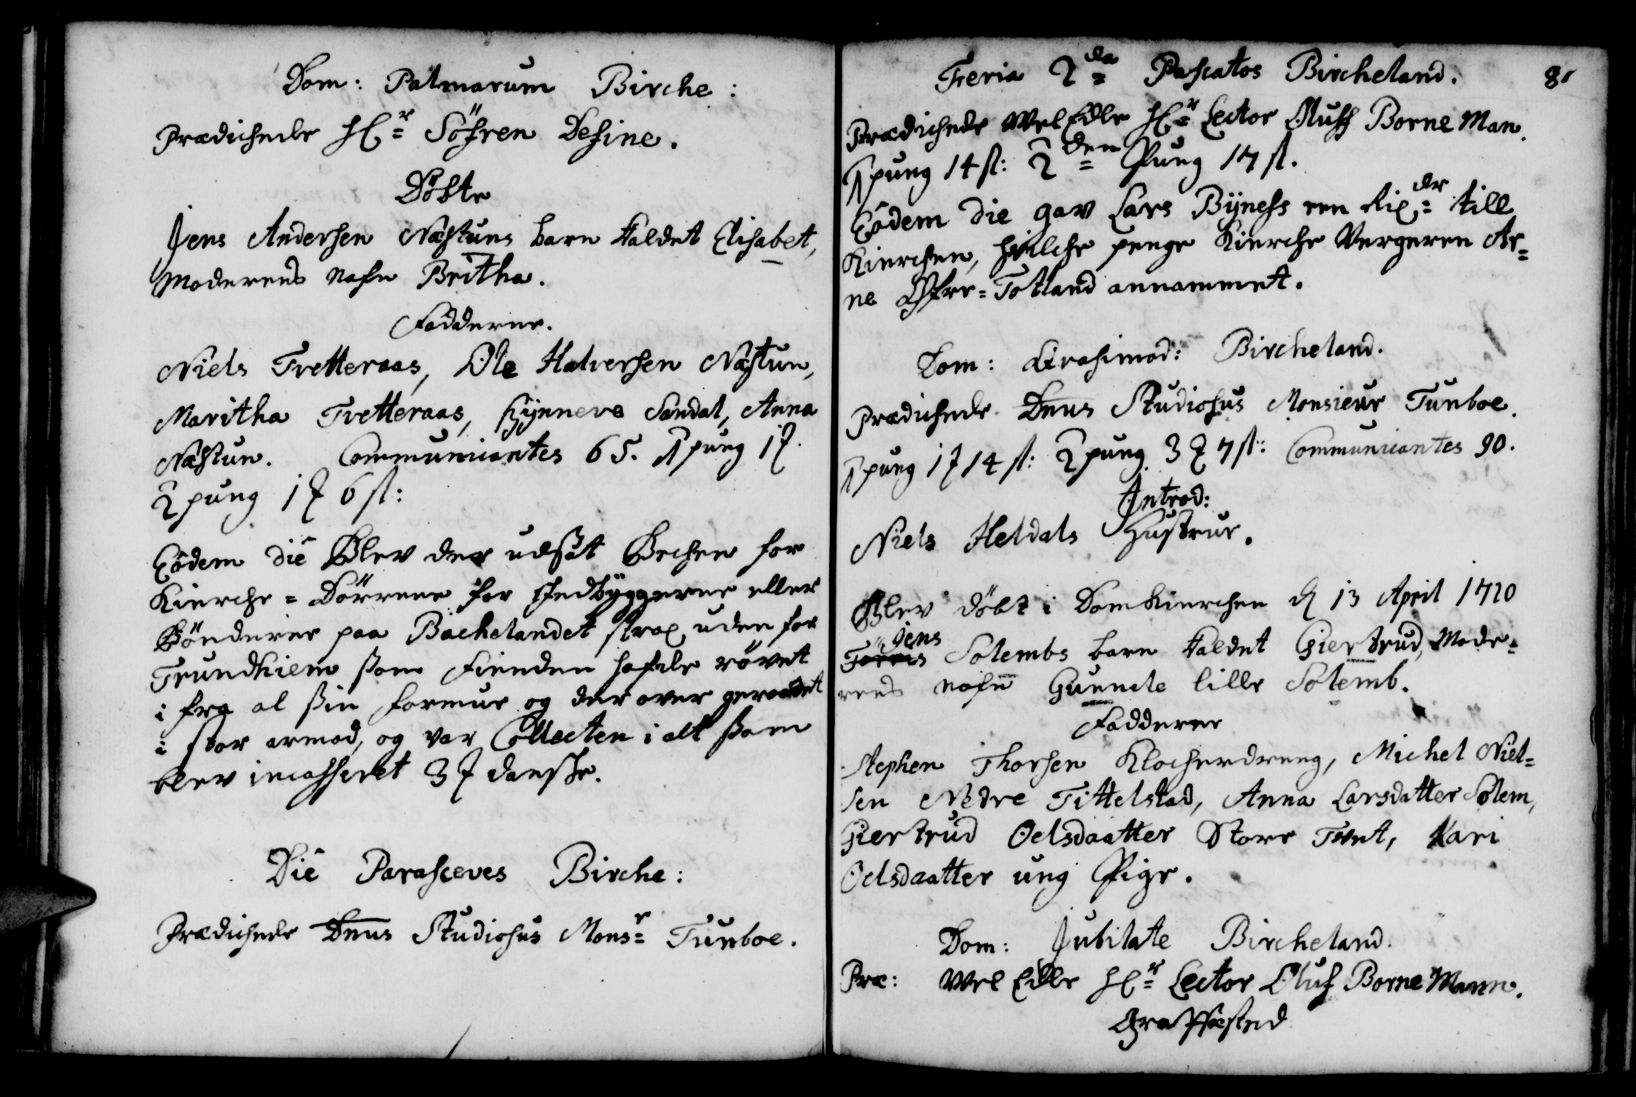 Dom: Palmarum Birche:
Prædichede Hr Söfren Desine.
Döbte
Jens Andersen Næstuns barn kaldet Elisabet,
Moderens nafn Britha.
Fadderne.
Niels Tvetteraas, Ole Halversen Næstun,
Maritha Tvetteraas, Synneve Sandal, Anna
Næstun. Communicantes 65. 1 pung 1
2 pung 1 6 ß:
Eödem die blev der udsat Becken for
Kierche-Dörrene for Indbyggerne eller
Bönderne paa Bachelandet strax uden for
Trundhiem som Fienden hafde rövet
i fra al sin formue og der over geraadet
i stor armod, og var Collecten i alt som
blev incasseret 3 danske.
Die Parasceves Birche:
Prædichede Dnus Studiosus Monsr Tunboe.
Feria 2da Pascatos Bircheland. 80
Prædichede WelEdle Hr Lector Oluff Borneman.
1 pung 14 ß: 2den Pung 17 ß.
Eödem die gav Lars Byness en Rixdr till
Kierchen, hvilche penge Kierche Vergeren Ar-
ne Öfre-Totland annammet.
Dom: Qvasimod: Bircheland.
Prædichede Dnus Studiosus Monsieur Tunboe.
1 pung 1 14 ß: 2 pung 3 7 ß: Communicantes 90.
Introd:
Niels Heldals Hustrue.
Blev döbt i Domkierchen d 13 April 1720
Jens
Solembs barn kaldet Giertrud, Mode-
rens nafn Gunnele lille Solemb.
Fadderne
Stephen Thorsen Klocherdreng, Michel Niel-
sen Nedre Tittelstad, Anna Larsdatter Solem,
Giertrud Oelsdaatter Store Tvet, Kari
Oelsdaatter ung Pige.
Dom: Jubilate Bircheland.
Præ: Wel Edle Hr Lector Oluf Borne Mann.
Græffæsted